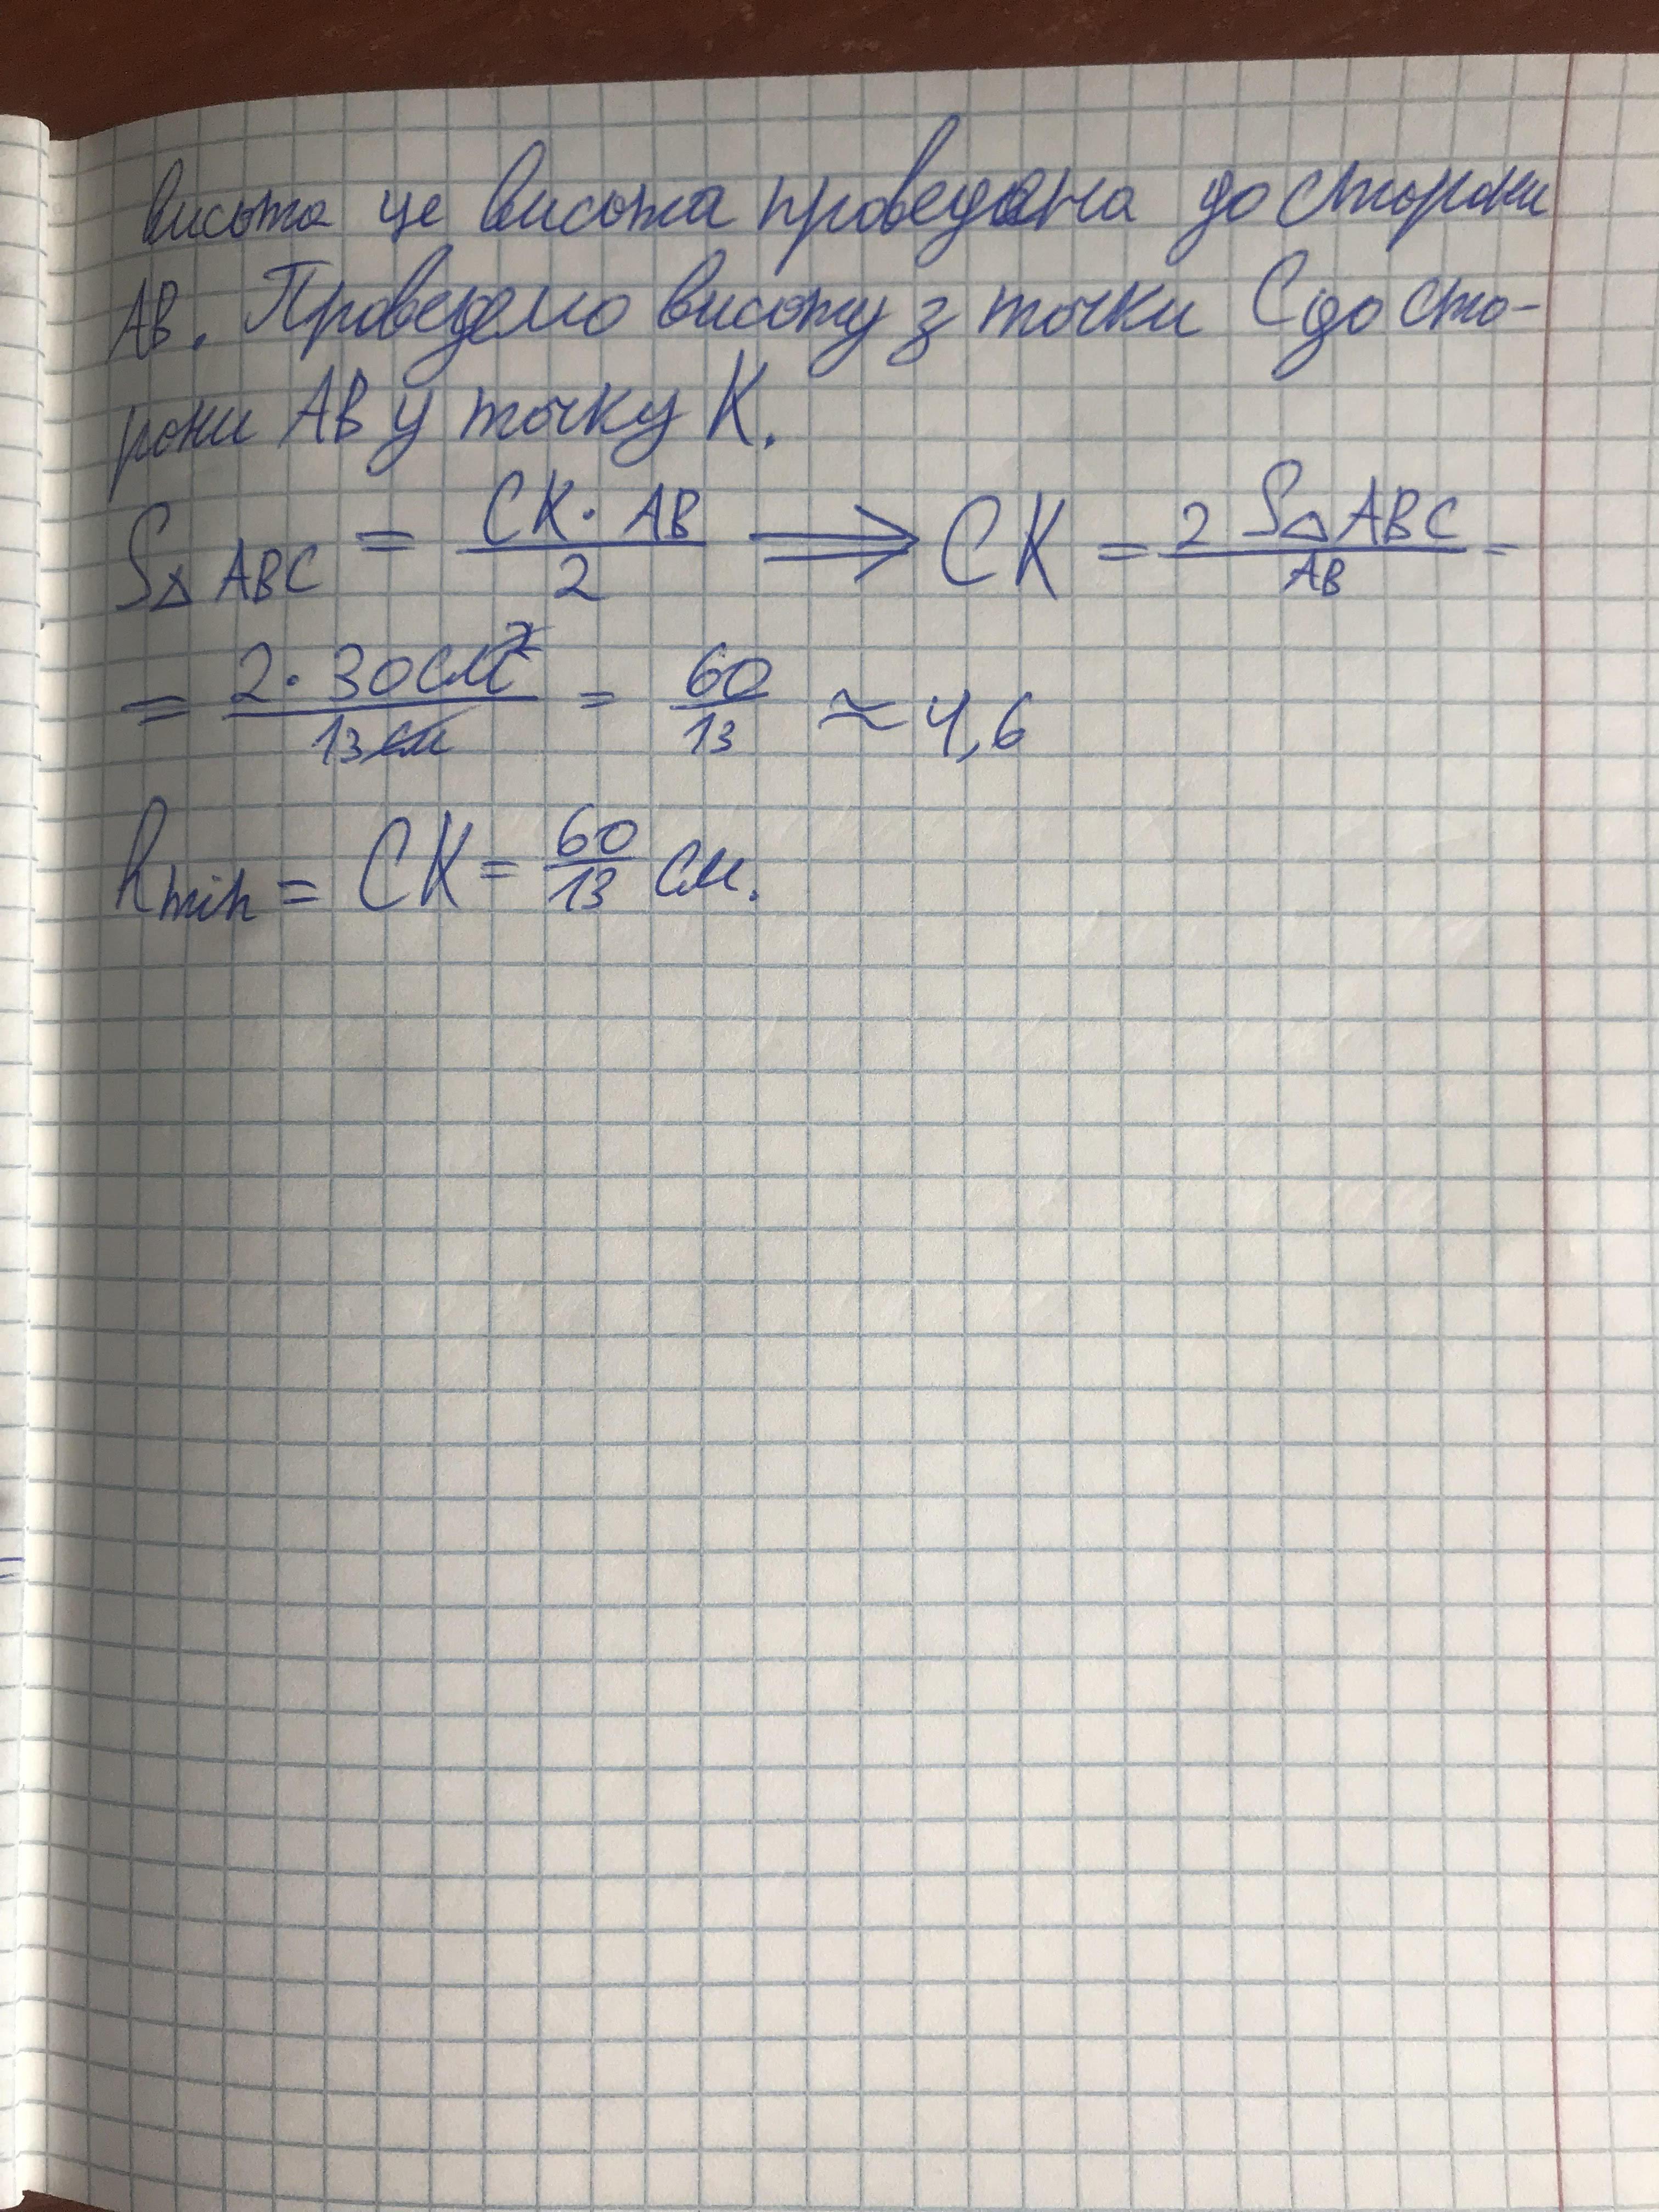 висота це висота проведена до сторони
AB. Проведемо висоту з точки C до сто-
рони AB у точку K.
S△ABC = CK · AB / 2 ⟹ CK = 2 S△ABC / AB =
= 2 · 30 см² / 13 см = 60 / 13 ≈ 4,6
hmin = CK = 60 / 13 см.